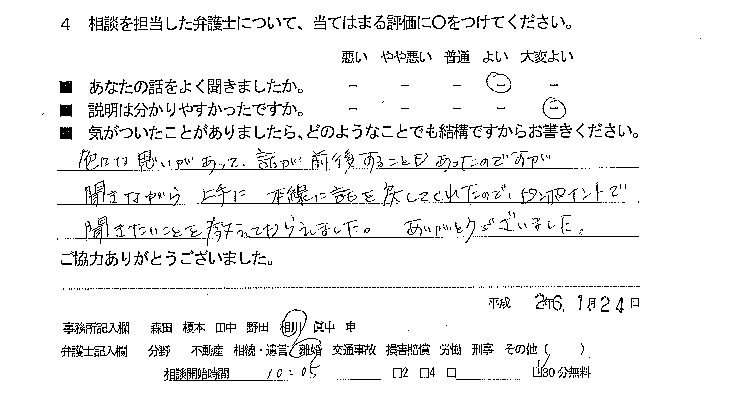 4 相談を担当した弁護士について、当てはまる評価に〇をつけてください。
悪い やや悪い 普通 よい 大変よい
■ あなたの話をよく聞きましたか。 － － － － －
■ 説明は分かりやすかったですか。 － － － － －
■ 気がついたことがありましたら、どのようなことでも結構ですからお書きください。
色々な思いがあって、話が前後することもあったのですが
聞きながら 上手に 本線に話を戻してくれたので、ピンポイントで
聞きたいことを教えてもらえました。 ありがとうございました。
ご協力ありがとうございました。
平成 26. 1月24日
事務所記入欄 森田 榎本 田中 野田 相川 眞中 申
弁護士記入欄 分野 不動産 相続・遺言 離婚 交通事故 損害賠償 労働 刑事 その他( )
相談開始時間 10:05 □2 □4 □ □30分無料